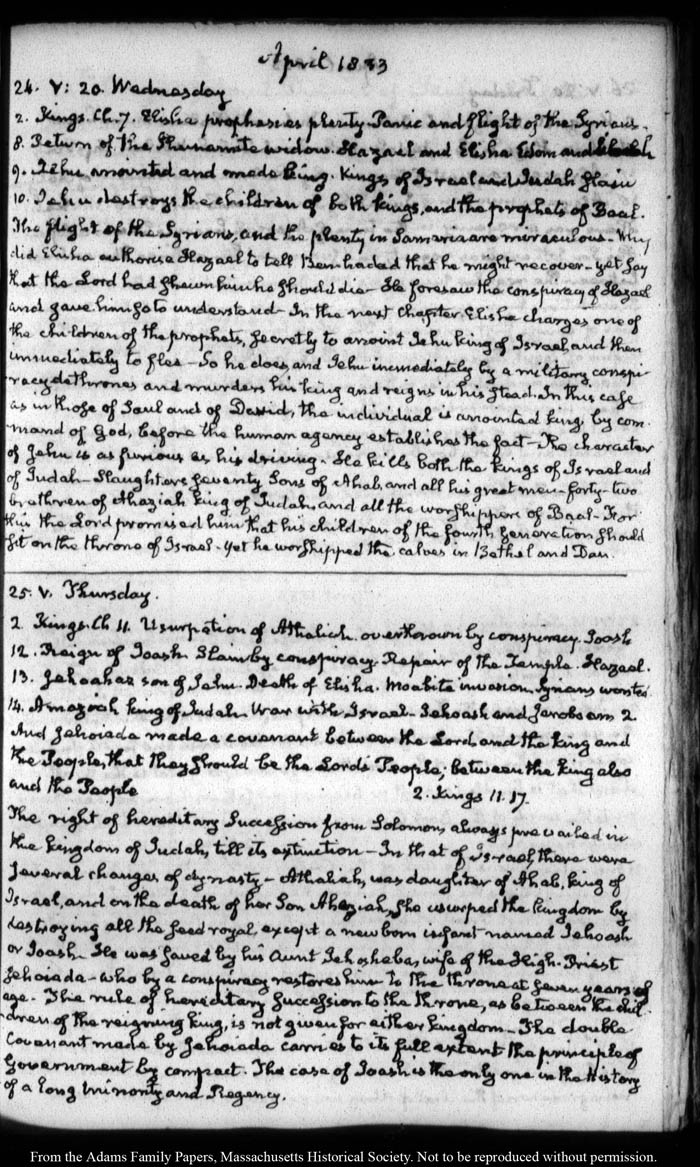 April 1833
24. V: 20. Wednesday
2. Kings. Ch. 7. Elisha prophesies plenty. Panic and flight of the Syrians.
8. Return of the Shunamite widow. Hazael and Elisha Edom and
9. Jehu anointed and made king. Kings of Israel and Judah slain
10. Jehu destroys the children of both kings, and the prophets of Baal.
The flight of the Syrians, and the plenty in Samaria are miraculous – Why
did Elisha authorise Hazael to tell Benhadad that he might recover – yet say
that the Lord had shewn him he should die – He foresaw the conspiracy of Hazael
and gave him so to understand – In the next Chapter Elisha charges one of
the children of the prophets, secretly to anoint Jehu king of Israel, and then
immediately to flee – So he does, and Jehu immediately by a military conspi-
racy dethrones and murders his king and reigns in his stead. In this case
as in those of Saul and of David, the individual is anointed king, by com-
mand of God, before the human agency establishes the fact – The character
of Jehu is as furious as his driving. He kills both the kings of Israel and
of Judah – Slaughters seventy Sons of Ahab, and all his great men – forty-two
brethren of Ahaziah king of Judah, and all the worshippers of Baal – For
this the Lord promised him that his children of the fourth generation should
sit on the throne of Israel – yet he worshipped the calves in Bethel and Dan.
25. V. Thursday.
2. Kings. Ch 11. Usurpation of Athaliah. overthrown by conspiracy. Joash
12. Reign of Joash. Slain by conspiracy. Repair of the Temple. Hazael.
13. Jehoahaz son of Jehu. Death of Elisha. Moabite invasion. Syrians worsted
14. Amaziah king of Judah. War with Israel. Jehoash and Jeroboam 2.
And Jehoiada made a covenant between the Lord and the king and
the People, that they should be the Lords People; between the king also
and the People 2. Kings 11.17.
The right of hereditary Succession from Solomon, always prevailed in
the kingdom of Judah, till its extinction – In that of Israel, there were
several changes of dynasty – Athaliah, was daughter of Ahab, king of
Israel, and on the death of her Son Ahaziah, she usurped the kingdom by
destroying all the seed royal, except a new born infant named Jehoash
or Joash. He was saved by his Aunt Jehosheba, wife of the High-Priest
Jehoiada – who by a conspiracy restores him to the throne at seven years of
age. The rule of hereditary succession to the throne, as between the chil-
dren of the reigning king, is not given for either kingdom – The double
Covenant made by Jehoiada carries to its full extent the principle of
Government by compact. The case of Joash is the only one in the History
of a long minority and Regency.
From the Adams Family Papers, Massachusetts Historical Society. Not to be reproduced without permission.